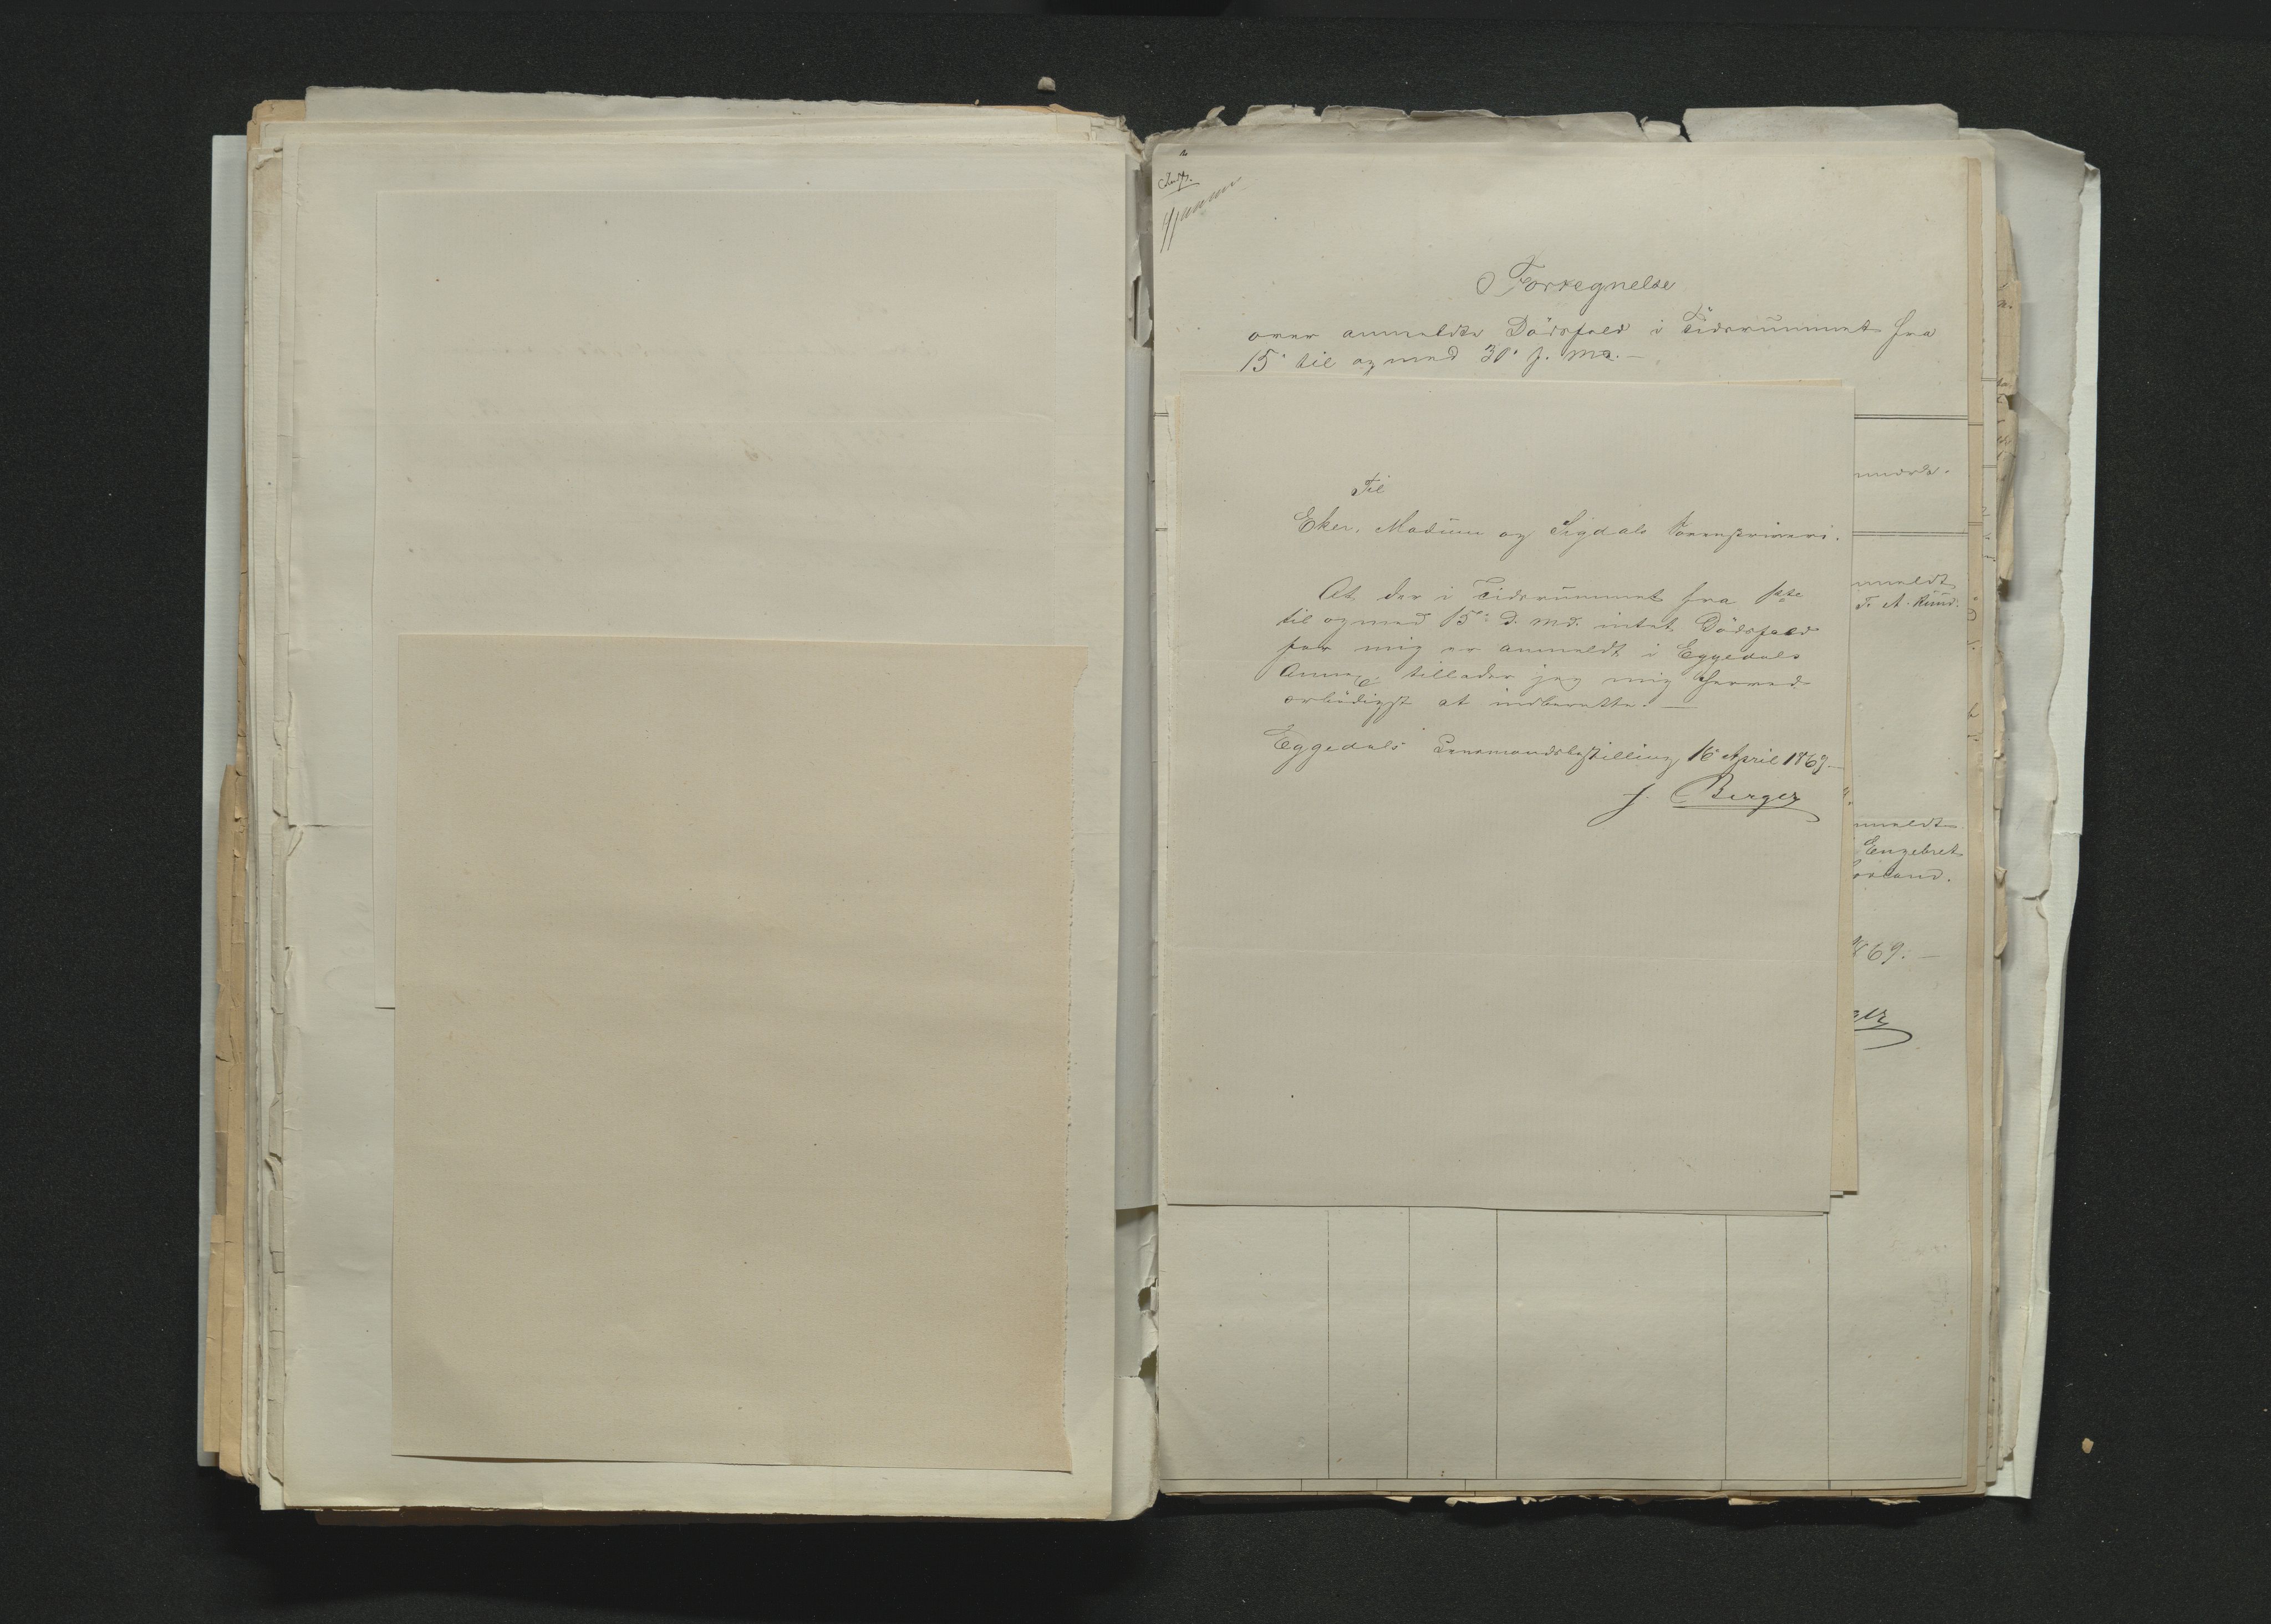 Fortegnelse
over anmeldte Dödsfald i Tidsrummet fra
15' til og med 30' f. Md.
Til
Eker, Modum og Sigdals Sorenskriveri.
At der i Tidsrummet fra 1ste
til og med 15' d. Md. intet Dödsfald
for mig er anmeldt i Eggedals
Annex tillader jeg mig herved
ærbödigst at indberette. —
Eggedals Lensmandsbestilling 16' April 1869. —
J. Berger
anmeldt
T. A. Ruud.
anmeldt
Engebret
1869. —